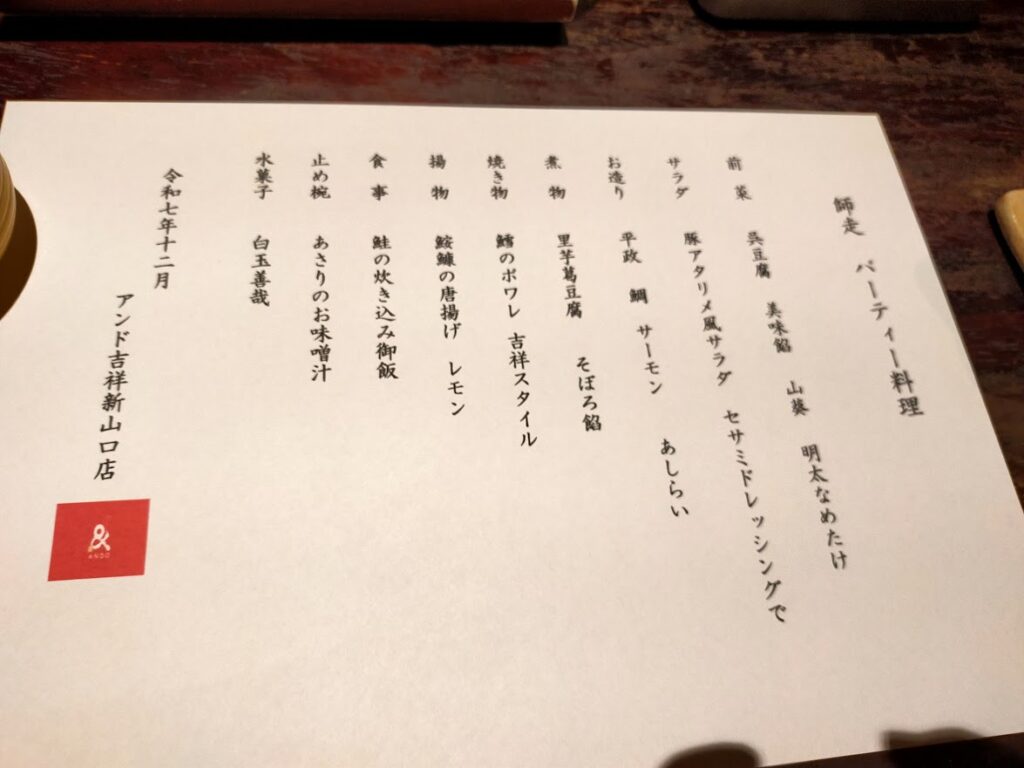 師走 パーティー料理
前菜 呉豆腐 美味餡 山葵 明太なめたけ
サラダ 豚アタリメ風サラダ セサミドレッシングで
お造り 平政 鯛 サーモン あしらい
煮物 里芋葛豆腐 そぼろ餡
焼き物 鱈のポワレ 吉祥スタイル
揚物 鮟鱇の唐揚げ レモン
食事 鮭の炊き込み御飯
止め椀 あさりのお味噌汁
水菓子 白玉善哉
令和七年十二月
アンド吉祥新山口店
&
ANDO